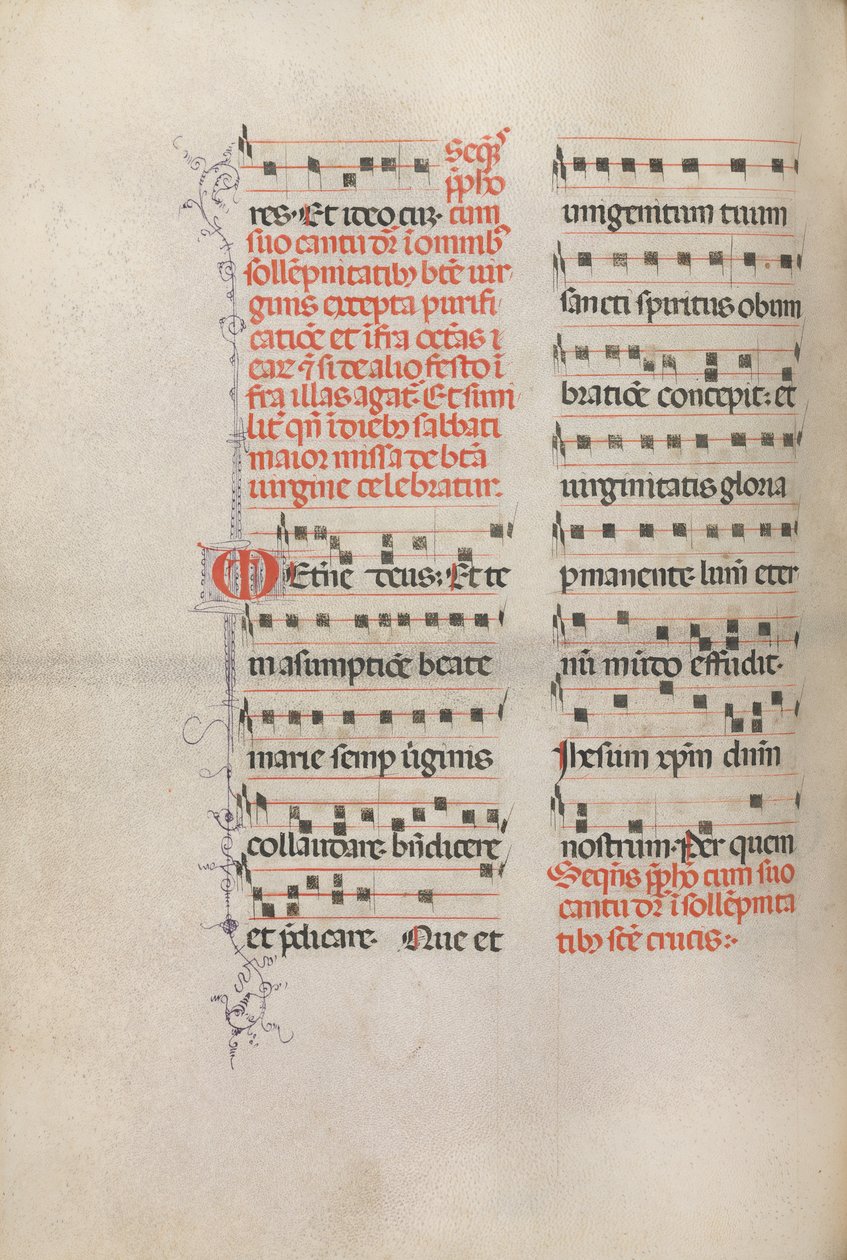 Seqn̄s
p̄pho
res. Et ideo cuz. cum
suo cantu dr̄ ī omnib9
sollēpnitatibȝ btē uir
ginis excepta purifi
catiōe et īfra octās i
ear ⁊ si de alio festo ī
fra illas agat̄. Et simi
lit̄ qn̄ ī diebȝ sabbati
maior missa de btā
uirgine celebratur.
M Etn̄e deus: Et te
in asumptiōe beate
marie semp ūginis
collaudare. bn̄dicere
et p̄dicare. Que et
unigenitum tuum
sancti spiritus obum
bratiōe concepit: et
uirginitatis gloria
pmanente. lum̄ eter
nū mūdo effudit.
Jhesum xp̄m dn̄m
nostrum. Per quem
Seqn̄s p̄pho cum suo
cantu dr̄ ī sollēpnita
tibȝ scē crucis:.